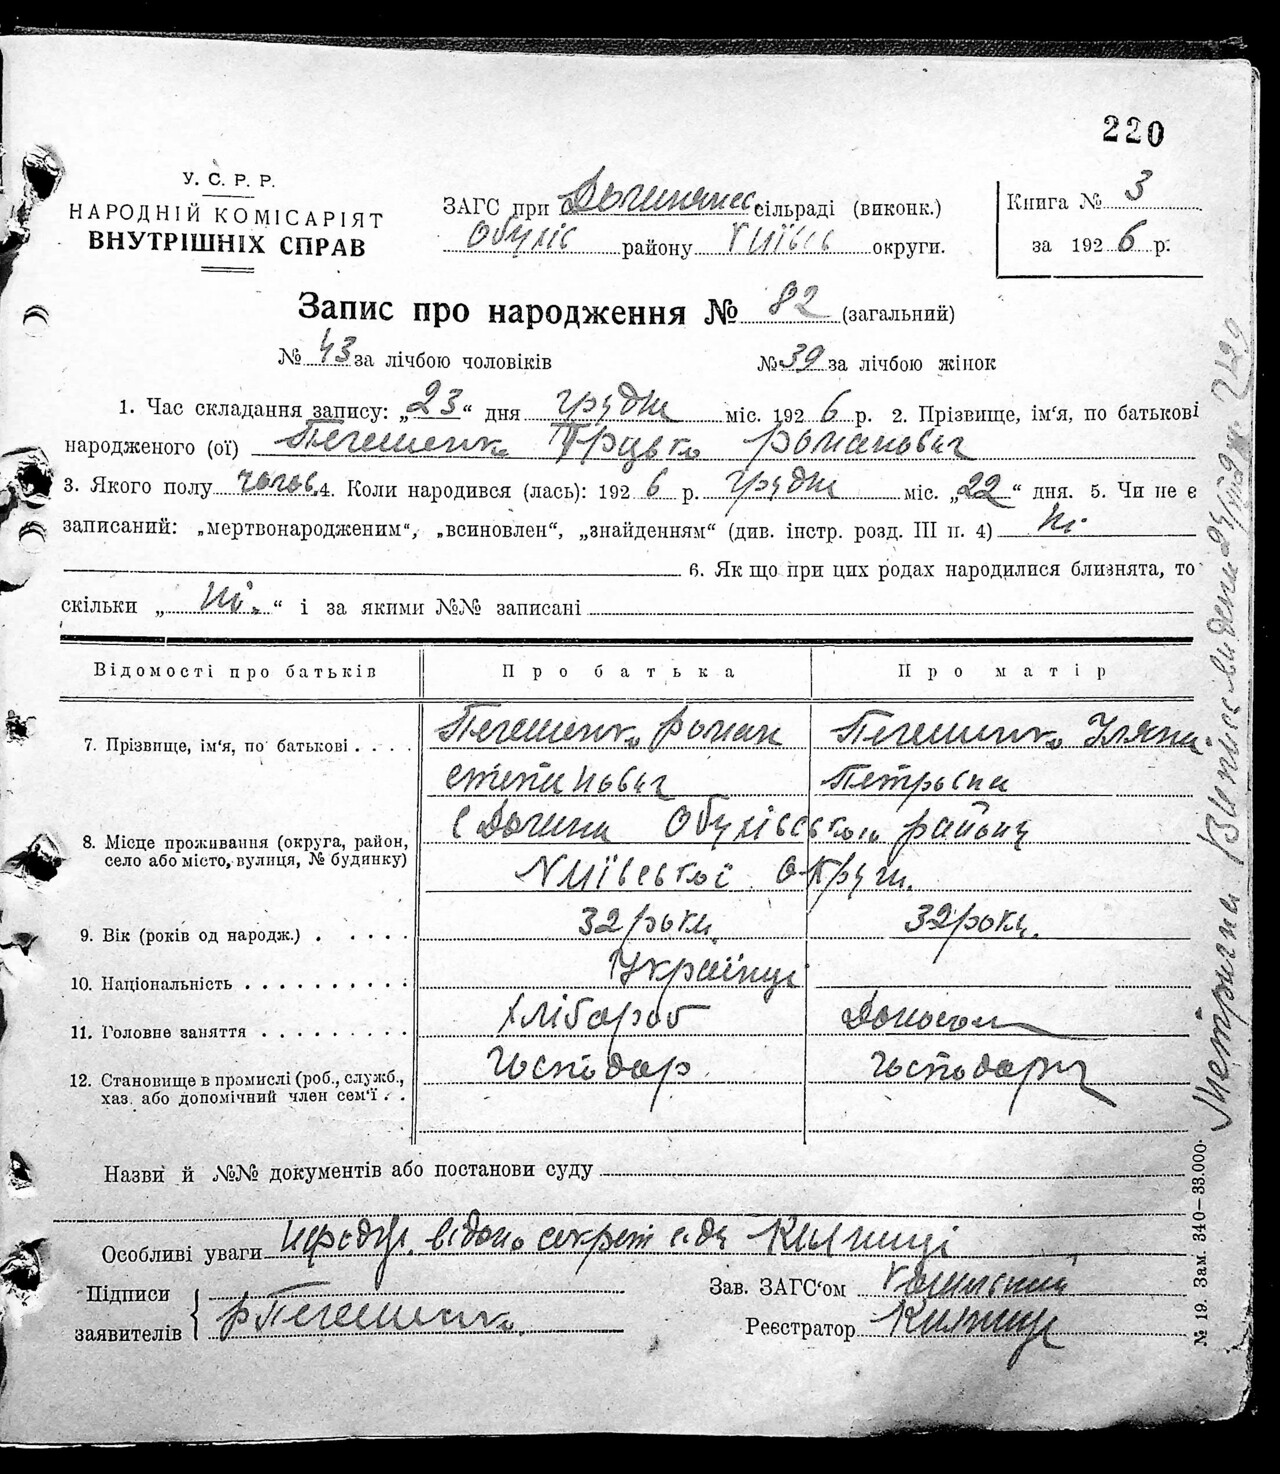 220
У. С. Р. Р.
НАРОДНІЙ КОМІСАРІЯТ
ВНУТРІШНІХ СПРАВ
ЗАГС при сільраді (виконк.)
Обухів району Київсь округи.
Книга № 3
за 1926 р.
Запис про народження № 82 (загальний)
№ 43 за лічбою чоловіків № 39 за лічбою жінок
1. Час складання запису: „23“ дня грудня міс. 1926 р. 2. Прізвище, ім‘я, по батькові
народженого (ої) Грицько Романович
3. Якого полу чолов. 4. Коли народився (лась): 1926 р. грудня міс. „22“ дня. 5. Чи не є
записаний: „мертвонародженим“, „всиновлен“, „знайденням“ (див. інстр. розд. III п. 4) Ні.
6. Як що при цих родах народилися близнята, то
скільки „Ні.“ і за якими №№ записані
Відомості про батьків Про батька Про матір
7. Прізвище, ім‘я, по батькові . . . . Роман Уляна
Степанович Петрівна
8. Місце проживання (округа, район, село або місто, вулиця, № будинку) с Долина Обухівського району
Київської Округи.
9. Вік (років од народж.) . . . . . 32 роки. 32 роки.
10. Національність . . . . . . . . . . Українці
11. Головне заняття . . . . . . . . . Хлібороб
12. Становище в промислі (роб., служб., хаз. або допомічний член сем‘ї . . Господар
Назви й №№ документів або постанови суду
Особливі уваги відомо секрет
Підписи
заявителів
Зав. ЗАГС‘ом
Реєстратор
№ 19. Зам. 340—33.000.
Метрична Випись видена